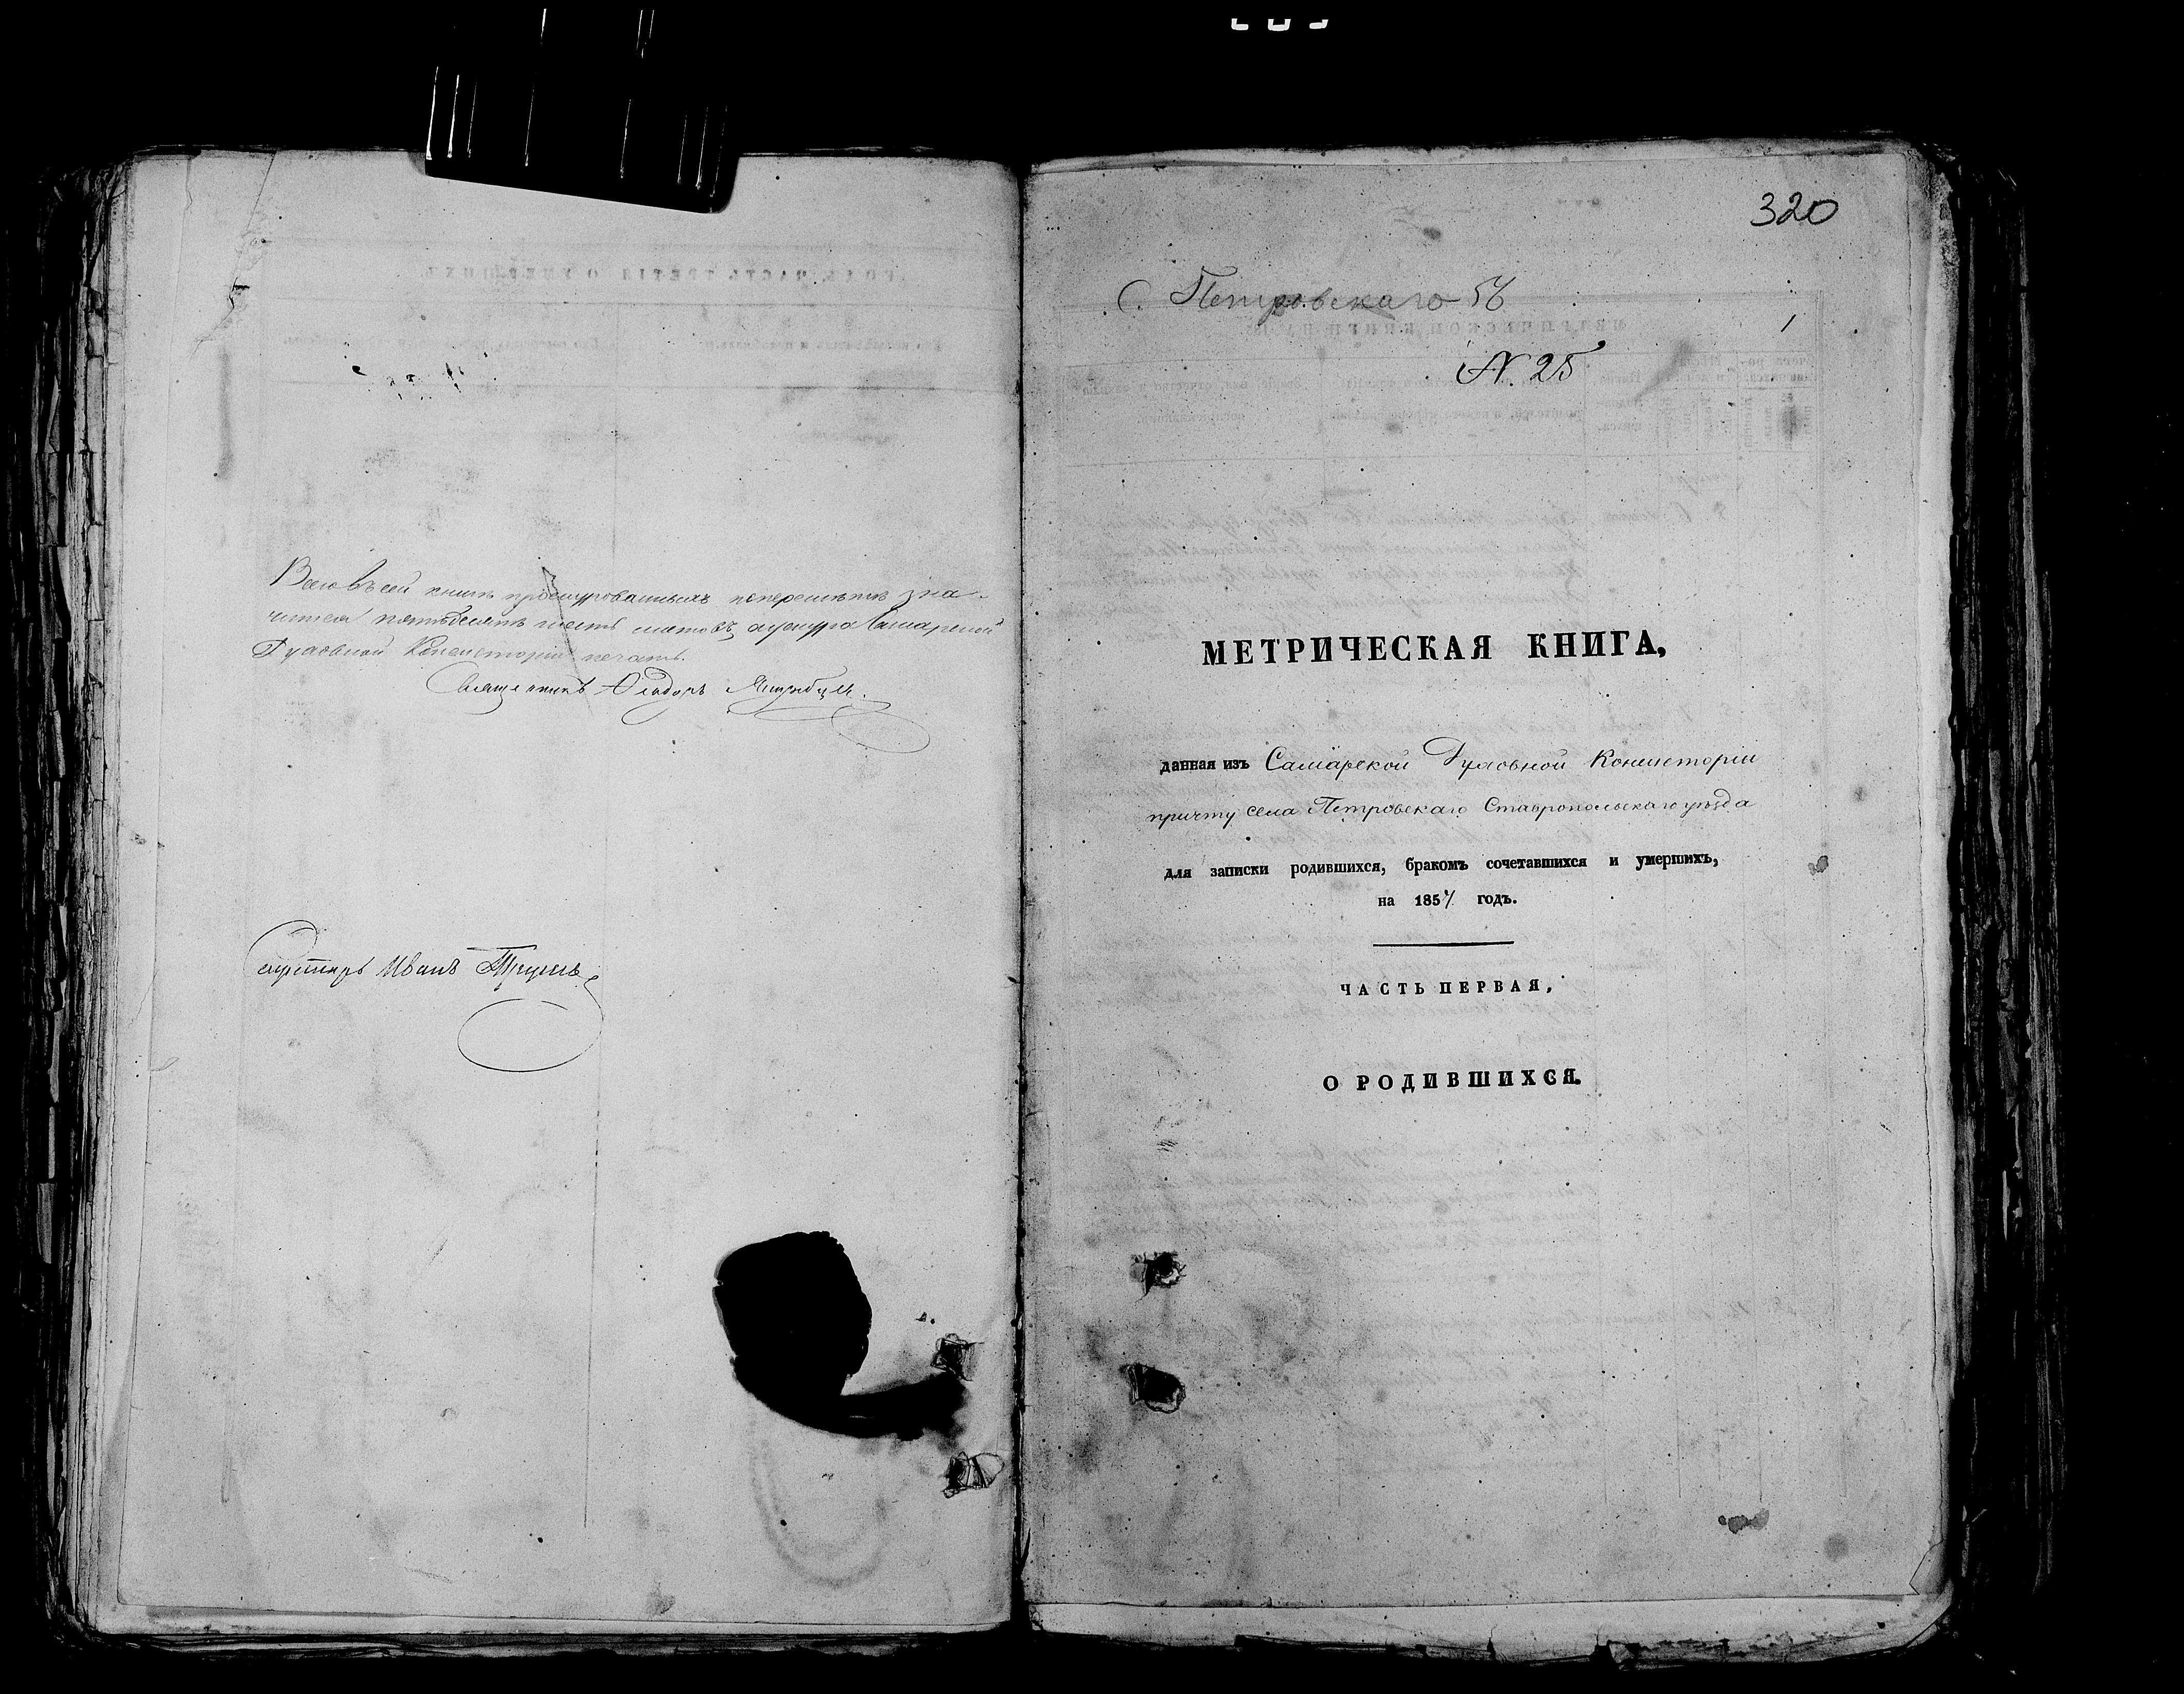 Всего въ сей книгѣ прошнурованныхъ попереномѣ зна-
чится пятьдесятъ шесть листовъ, у шнура Самарской
Духовной Консисторіи печать.
Священникъ Ѳеодоръ
Секретарь Иванъ
320
С. Петровскаго 56
1
N. 25
МЕТРИЧЕСКАЯ КНИГА,
данная изъ Самарской Духовной Консисторіи
причту села Петровскаго Ставропольскаго уѣзда
для записки родившихся, бракомъ сочетавшихся и умершихъ,
на 185 годъ.
ЧАСТЬ ПЕРВАЯ,
О РОДИВШИХСЯ.